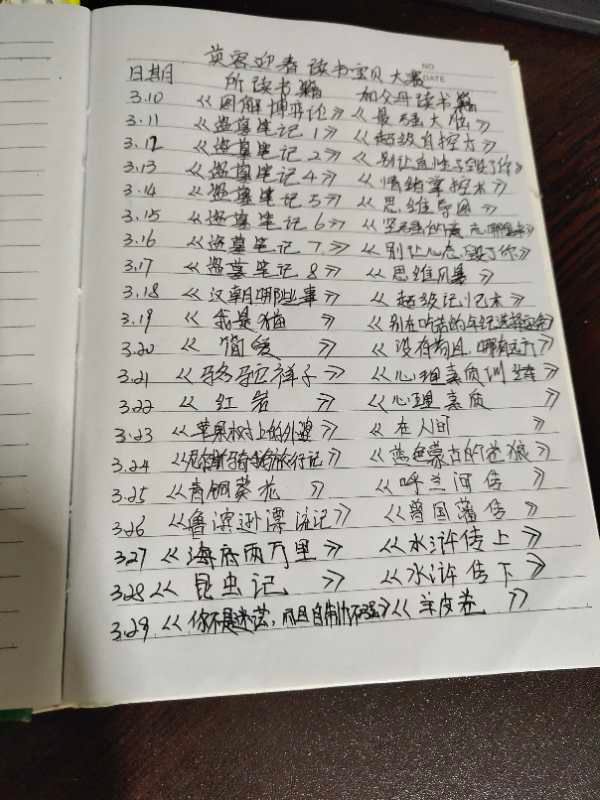 英容迎春读书宝贝大赛
NO
DATE
日期 所读书籍 和父母读书籍
3.10 《图解博弈论》 《最强大脑》
3.11 《盗墓笔记1》 《超级自控力》
3.12 《盗墓笔记2》 《别让直性子毁了你》
3.13 《盗墓笔记4》 《情绪掌控术》
3.14 《盗墓笔记5》 《思维导图》
3.15 《盗墓笔记6》
3.16 《盗墓笔记7》 《别让心态毁了你》
3.17 《盗墓笔记8》 《思维风暴》
3.18 《汉朝那些事》 《超级记忆术》
3.19 《我是猫》 《别在吃苦的年纪选择安逸》
3.20 《简爱》 《没有苟且,哪有远方》
3.21 《骆驼祥子》 《心理素质训练》
3.22 《红岩》 《心理素质》
3.23 《苹果树上的外婆》 《在人间》
3.24 《尼尔斯骑鹅旅行记》 《蓝色蒙古的苍狼》
3.25 《青铜葵花》 《呼兰河传》
3.26 《鲁滨逊漂流记》 《曾国藩传》
3.27 《海底两万里》 《水浒传上》
3.28 《昆虫记》 《水浒传下》
3.29 《你不是迷茫,而是自制力不强》 《羊皮卷》